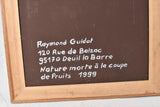 Raymond Guidot
120 Rue de Balzac
95170 Deuil la Barre
Nature morte à la coupe
de Fruits 1999